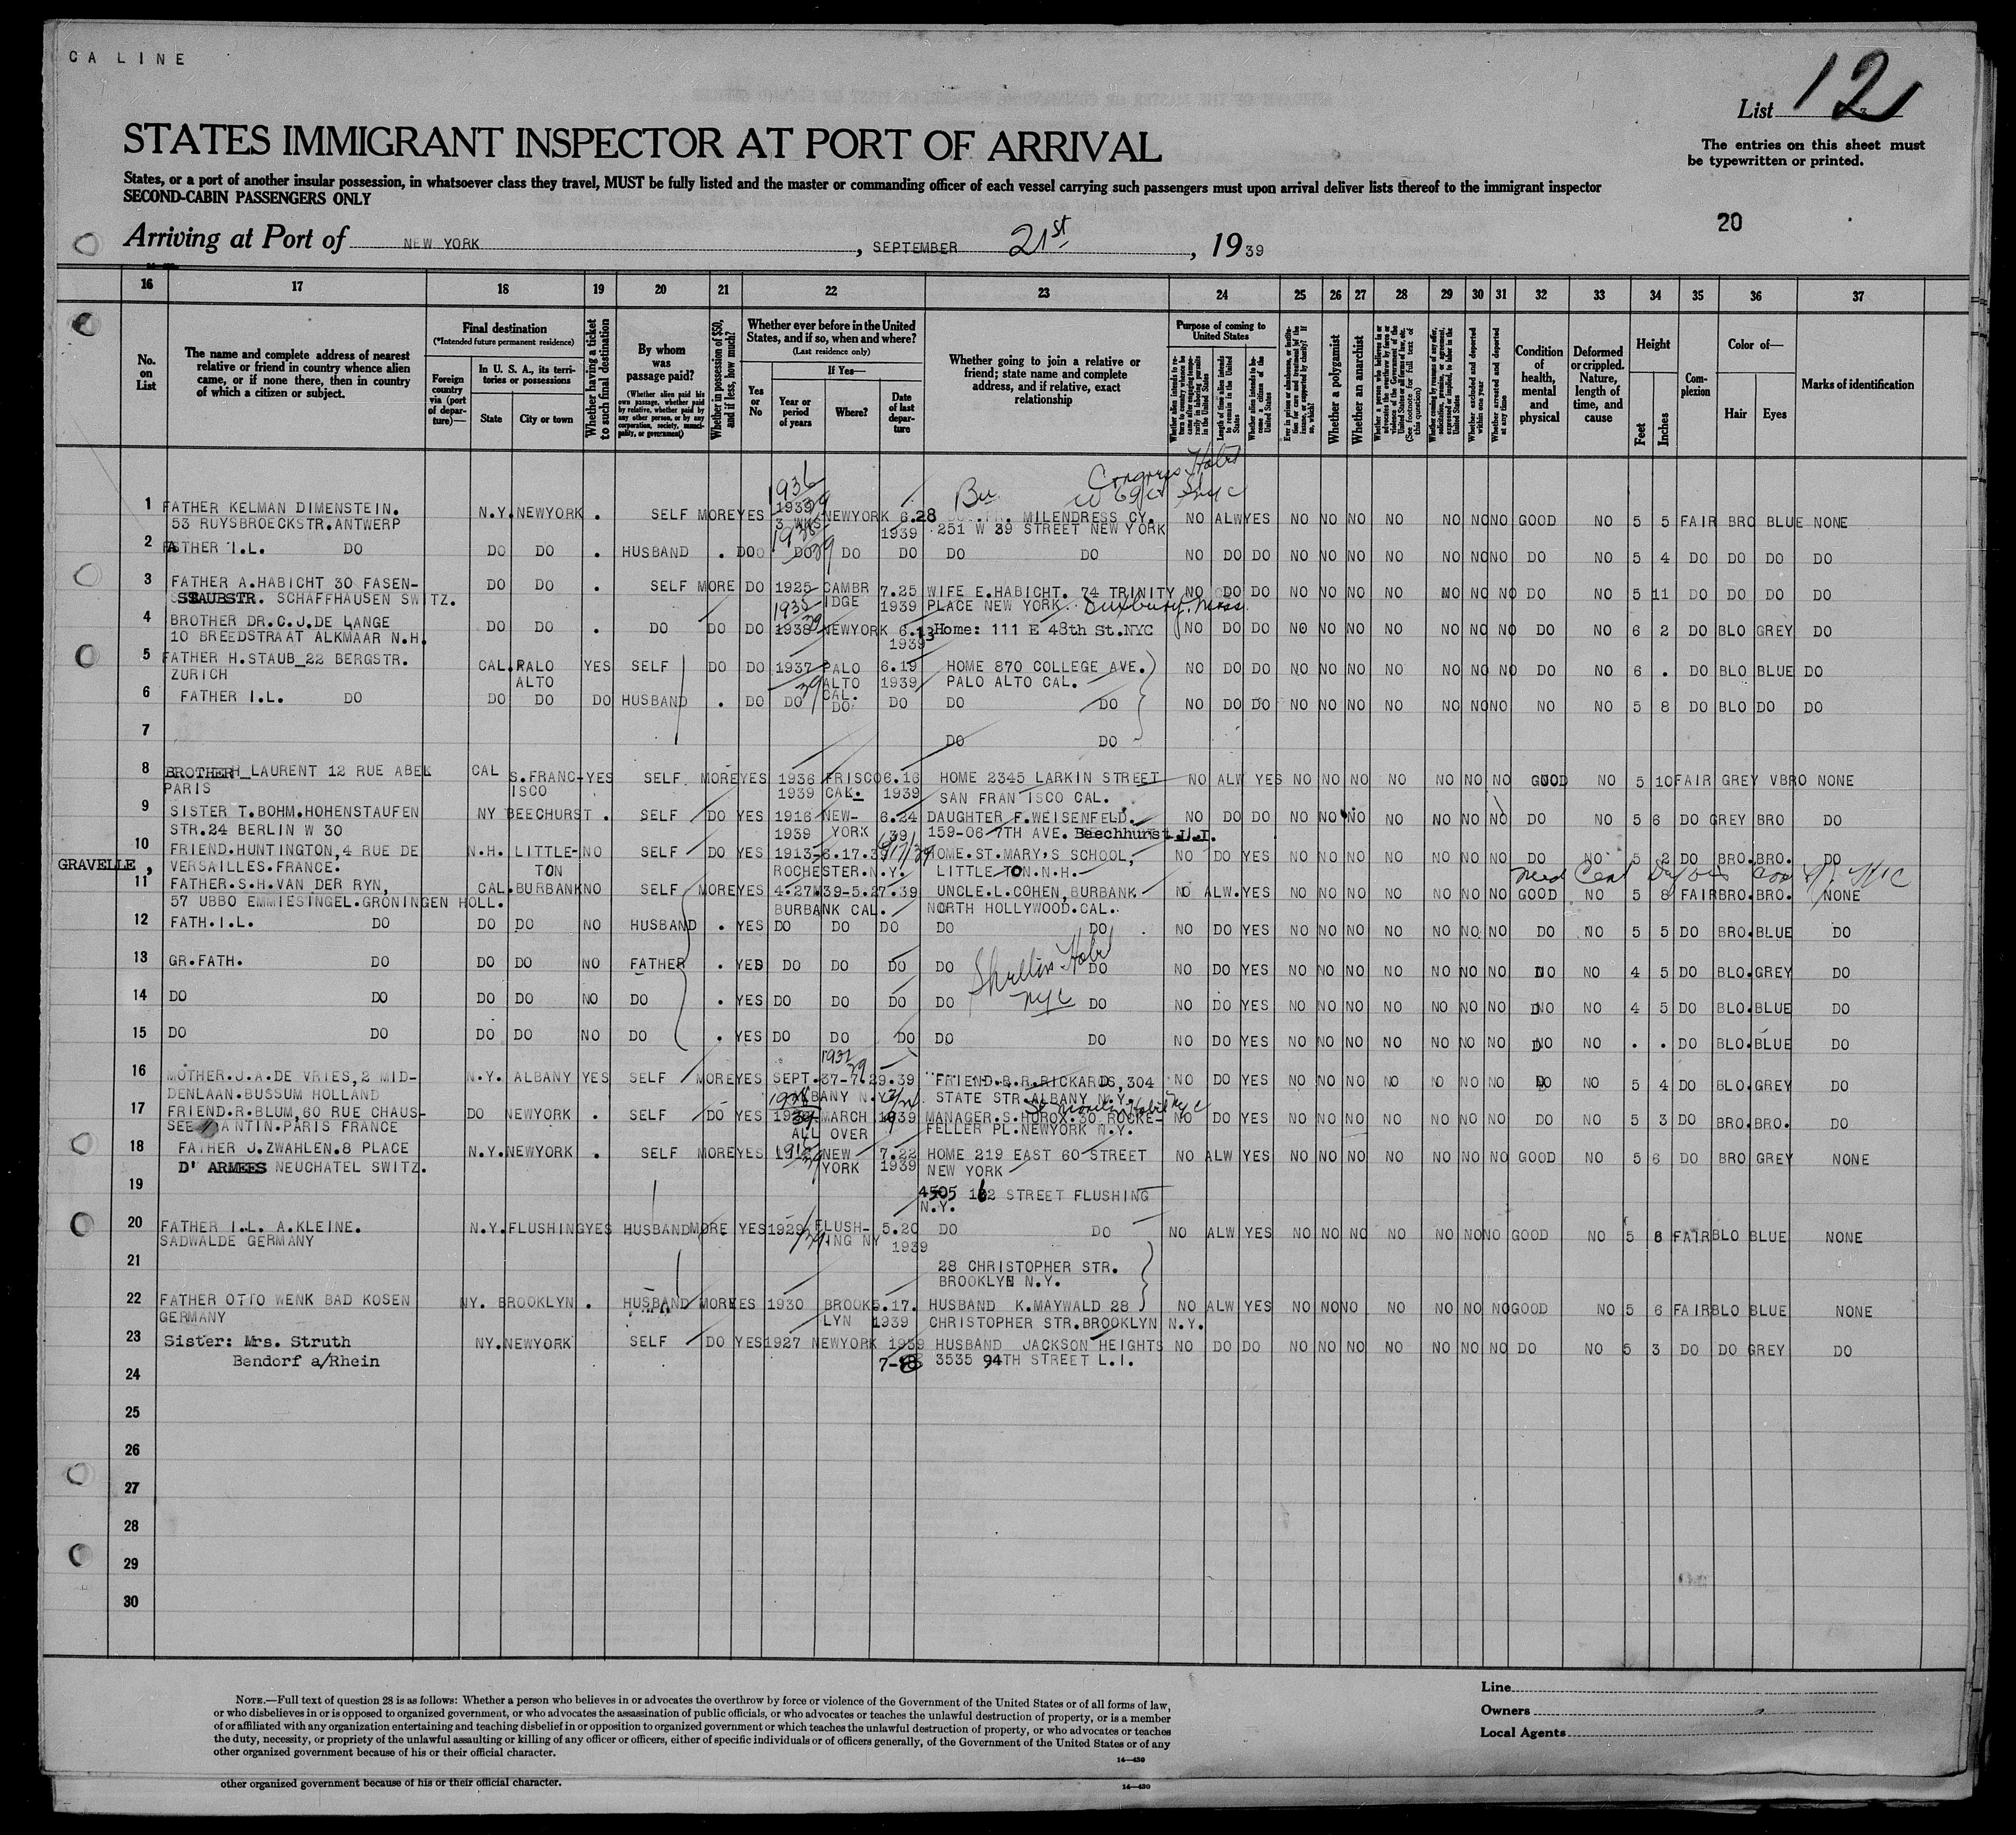 CA LINE
List 12
3
The entries on this sheet must
be typewritten or printed.
STATES IMMIGRANT INSPECTOR AT PORT OF ARRIVAL
States, or a port of another insular possession, in whatsoever class they travel, MUST be fully listed and the master or commanding officer of each vessel carrying such passengers must upon arrival deliver lists thereof to the immigrant inspector
SECOND-CABIN PASSENGERS ONLY
20
Arriving at Port of NEW YORK, SEPTEMBER 21st, 1939
16 17 18 19 20 21 22 23 24 25 26 27 28 29 30 31 32 33 34 35 36 37
No. on List
The name and complete address of nearest relative or friend in country whence alien came, or if none there, then in country of which a citizen or subject.
Final destination
(*Intended future permanent residence)
Foreign country via (port of departure)—
In U. S. A., its territories or possessions
State
City or town
Whether having a ticket to such final destination
By whom was passage paid?
(Whether alien paid his own passage, whether paid by relative, whether paid by any other person, or by any corporation, society, municipality, or government)
Whether in possession of $50, and if less, how much?
Whether ever before in the United States, and if so, when and where?
(Last residence only)
Yes or No
If Yes—
Year or period of years
Where?
Date of last departure
Whether going to join a relative or friend; state name and complete address, and if relative, exact relationship
Purpose of coming to United States
Length of time alien intends to remain in the United States
Whether alien intends to become a citizen of the United States
Whether a polygamist
Whether an anarchist
Whether excluded and deported within one year
Whether arrested and deported at any time
Condition of health, mental and physical
Deformed or crippled. Nature, length of time, and cause
Height
Feet
Inches
Complexion
Color of—
Hair
Eyes
Marks of identification
1936
Congress Hotel
W 69 St NYC
1 FATHER KELMAN DIMENSTEIN. N.Y. NEWYORK . SELF MORE YES 1939 NEWYORK 6.28 MILENDRESS CY. NO ALW YES NO NO NO NO NO NO NO GOOD NO 5 5 FAIR BRO BLUE NONE
53 RUYSBROECKSTR.ANTWERP 3 WKS 1939 251 W 39 STREET NEW YORK
2 FATHER I.L. DO DO DO . HUSBAND . DO DO DO DO DO DO NO DO DO NO NO NO NO NO NO NO DO NO 5 4 DO DO DO DO
3 FATHER A.HABICHT 30 FASEN- DO DO . SELF MORE DO 1925 CAMBR 7.25 WIFE E.HABICHT. 74 TRINITY NO DO DO NO NO NO NO NO NO NO DO NO 5 11 DO DO DO DO
STAUBSTR. SCHAFFHAUSEN SWITZ. IDGE 1939 PLACE NEW YORK. Duxbury, Mass.
4 BROTHER DR.C.J.DE LANGE DO DO . DO DO DO 1938 NEWYORK 6.13 Home: 111 E 48th St.NYC NO DO DO NO NO NO NO NO NO NO DO NO 6 2 DO BLO GREY DO
10 BREEDSTRAAT ALKMAAR N.H. 1939
5 FATHER H.STAUB_22 BERGSTR. CAL. PALO YES SELF DO DO 1937 PALO 6.19 HOME 870 COLLEGE AVE. NO DO DO NO NO NO NO NO NO NO DO NO 6 . DO BLO BLUE DO
ZURICH ALTO 39 ALTO 1939 PALO ALTO CAL.
CAL.
6 FATHER I.L. DO DO DO DO HUSBAND . DO DO DO DO DO DO NO DO DO NO NO NO NO NO NO NO NO NO 5 8 DO BLO DO DO
7 DO DO
8 BROTHER H_LAURENT 12 RUE ABEL CAL S.FRANC- YES SELF MORE YES 1936 FRISCO 6.16 HOME 2345 LARKIN STREET NO ALW YES NO NO NO NO NO NO NO GOOD NO 5 10 FAIR GREY VBRO NONE
PARIS ISCO 1939 CAL. 1939 SAN FRAN ISCO CAL.
9 SISTER T.BOHM.HOHENSTAUFEN NY BEECHURST . SELF DO YES 1916 NEW- 6.24 DAUGHTER F.WEISENFELD. NO DO DO NO NO NO NO NO NO NO DO NO 5 6 DO GREY BRO DO
STR.24 BERLIN W 30 1939 YORK 39 159-06 7TH AVE. Beechhurst L.I.
10 FRIEND.HUNTINGTON,4 RUE DE N.H. LITTLE- NO SELF DO YES 1913-6.17.39 HOME.ST.MARY'S SCHOOL, NO DO YES NO NO NO NO NO NO NO DO NO 5 2 DO BRO. BRO. DO
GRAVELLE, VERSAILLES.FRANCE. TON ROCHESTER.N.Y. LITTLETON.N.H.
11 FATHER.S.H.VAN DER RYN, CAL. BURBANK NO SELF MORE YES 4.27M39-5.27.39 UNCLE.L.COHEN,BURBANK NO ALW. YES NO NO NO NO NO NO NO GOOD NO 5 8 FAIR BRO. BRO. NONE
57 UBBO EMMIESINGEL.GRONINGEN HOLL. BURBANK CAL. NORTH HOLLYWOOD.CAL.
12 FATH.I.L. DO DO DO NO HUSBAND . YES DO DO DO DO DO NO DO YES NO NO NO NO NO NO NO DO NO 5 5 DO BRO. BLUE DO
13 GR.FATH. DO DO DO NO FATHER . YES DO DO DO DO DO NO DO YES NO NO NO NO NO NO NO DO NO 4 5 DO BLO. GREY DO
Hotel
NYC
14 DO DO DO DO NO DO . YES DO DO DO DO DO NO DO YES NO NO NO NO NO NO NO DO NO 4 5 DO BLO. BLUE DO
15 DO DO DO DO NO DO . YES DO DO DO DO DO NO DO YES NO NO NO NO NO NO NO DO NO . . DO BLO. BLUE DO
16 MOTHER.J.A.DE VRIES,2 MID- N.Y. ALBANY YES SELF MORE YES SEPT.37-7.29.39 FRIEND.B.R.RICKARDS,304 NO DO YES NO NO NO NO NO NO NO DO NO 5 4 DO BLO. GREY DO
DENLAAN.BUSSUM HOLLAND ALBANY N.Y. STATE STR.ALBANY N.Y.
St Moritz Hotel NYC
17 FRIEND.R.BLUM,60 RUE CHAUS- DO NEWYORK . SELF DO YES MARCH 1939 MANAGER.S.HUROX.30 ROCKE- NO DO YES NO NO NO NO NO NO NO DO NO 5 3 DO BRO. BRO. DO
SEE ANTIN.PARIS FRANCE ALL OVER FELLER PL.NEWYORK N.Y.
18 FATHER J.ZWAHLEN.8 PLACE N.Y. NEWYORK . SELF MORE YES NEW 7.22 HOME 219 EAST 60 STREET NO ALW YES NO NO NO NO NO NO NO GOOD NO 5 6 DO BRO GREY NONE
D' ARMEES NEUCHATEL SWITZ. YORK 1939 NEW YORK
19 4505 162 STREET FLUSHING
N.Y.
20 FATHER I.L. A.KLEINE. N.Y. FLUSHING YES HUSBAND MORE YES 1929 FLUSH- 5.20 DO DO NO ALW YES NO NO NO NO NO NO NO GOOD NO 5 8 FAIR BLO BLUE NONE
SADWALDE GERMANY ING NY 1939
21 28 CHRISTOPHER STR.
BROOKLYN N.Y.
22 FATHER OTTO WENK BAD KOSEN NY. BROOKLYN . HUSBAND MORE YES 1930 BROOK 5.17. HUSBAND K.MAYWALD 28 NO ALW YES NO NO NO NO NO NO NO GOOD NO 5 6 FAIR BLO BLUE NONE
GERMANY LYN 1939 CHRISTOPHER STR.BROOKLYN N.Y.
23 Sister: Mrs. Struth NY. NEWYORK SELF DO YES 1927 NEWYORK 1939 HUSBAND JACKSON HEIGHTS NO DO DO NO NO NO NO NO NO NO DO NO 5 3 DO DO GREY DO
Bendorf a/Rhein 3535 94TH STREET L.I.
24
25
26
27
28
29
30
NOTE.—Full text of question 28 is as follows: Whether a person who believes in or advocates the overthrow by force or violence of the Government of the United States or of all forms of law,
or who disbelieves in or is opposed to organized government, or who advocates the assassination of public officials, or who advocates or teaches the unlawful destruction of property, or is a member
of or affiliated with any organization entertaining and teaching disbelief in or opposition to organized government or which teaches the unlawful destruction of property, or who advocates or teaches
the duty, necessity, or propriety of the unlawful assaulting or killing of any officer or officers, either of specific individuals or of officers generally, of the Government of the United States or of any
other organized government because of his or their official character.
14—430
Line
Owners
Local Agents
other organized government because of his or their official character.
14—430